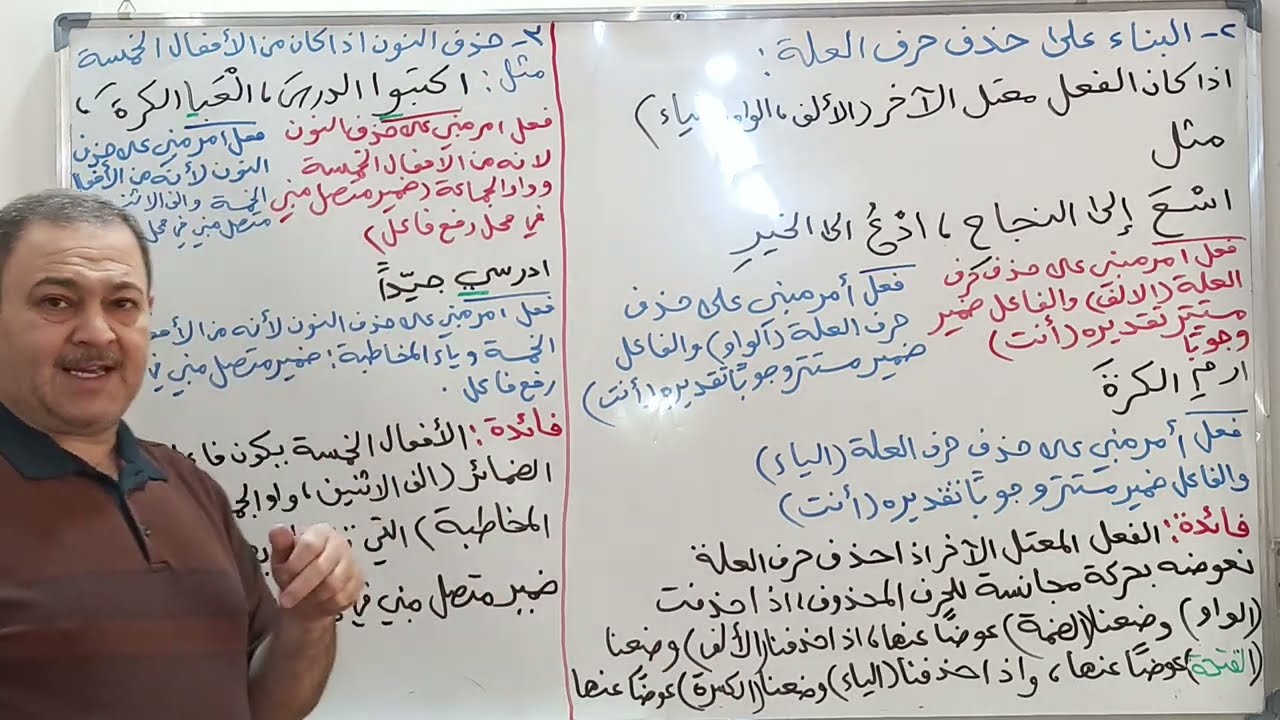 ٢- البناء على حذف حرف العلة :
اذا كان الفعل معتل الآخر (الألف، الواو، ياء)
مثل
اسْعَ إلى النجاح ، ادْعُ الى الخيرِ
فعل امر مبني على حذف حرف
العلة (الالف) والفاعل ضمير
مستتر تقديره (أنت)
وجوبًا
فعل أمر مبني على حذف
حرف العلة (الواو) والفاعل
ضمير مستتر وجوبًا تقديره (أنت)
ارمِ الكرةَ
فعل أمر مبني على حذف حرف العلة (الياء)
والفاعل ضمير مستتر وجوبًا تقديره (أنت)
فائدة: الفعل المعتل الآخر اذا حذف حرف العلة
نعوضه بحركة مجانسة للحرف المحذوف، اذا حذفت
(الواو) وضعنا (الضمة) عوضًا عنها، اذا حذفنا (الألف) وضعنا
(الفتحة) عوضًا عنها، واذا حذفنا (الياء) وضعنا (الكسرة) عوضًا عنها
٣- حذف النون اذا كان من الأفعال الخمسة
مثل : اكتبوا الدرسَ ، الْعَبا الكرةَ ،
فعل امر مبني على حذف النون
لانه من الافعال الخمسة
وواو الجماعة (ضمير متصل مبني
في محل رفع فاعل)
فعل امر مبني على حذف
النون لأنه من الأفعا
الخمسة والف الاثن
متصل مبني في محل
ادرسي جيّدًا
فعل امر مبني على حذف النون لأنه من الأفعا
الخمسة وياء المخاطبة : ضمير متصل مبني في
رفع فاعل .
فائدة : الأفعال الخمسة يكون فا
الضمائر (الف الاثنين ، واو الج
المخاطبة) التي
ضمير متصل مبني في